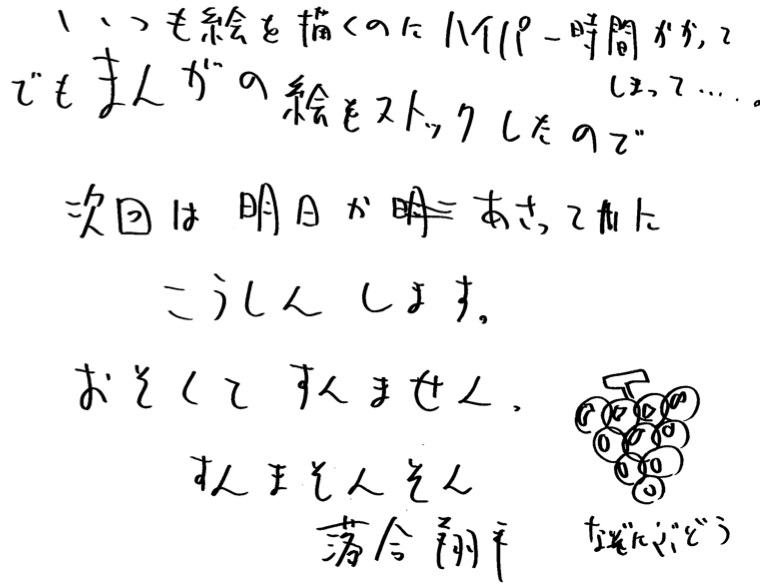 いつも絵を描くのにハイパー時間がかかって
しまって……。
でもまんがの絵もストックしたので
次回は明日かあさってに
こうしんします。
おそくてすんません、
すんまそんそん
落合翔平
なぞにぶどう